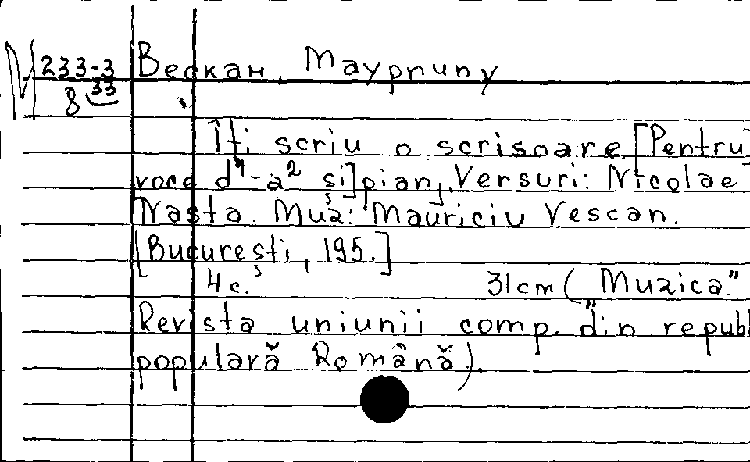 М 233-3 Вескан, Маурпипу
8 33
Îți scriu o scrisoare [Pentru
voce d¹-a² și] pian, Versuri: Nicolae
Nasta. Muz: Mauriciu Vescan.
[București, 195.]
4 c. 31 cm („Muzica"
Revista uniunii comp. din republ
populară Română).